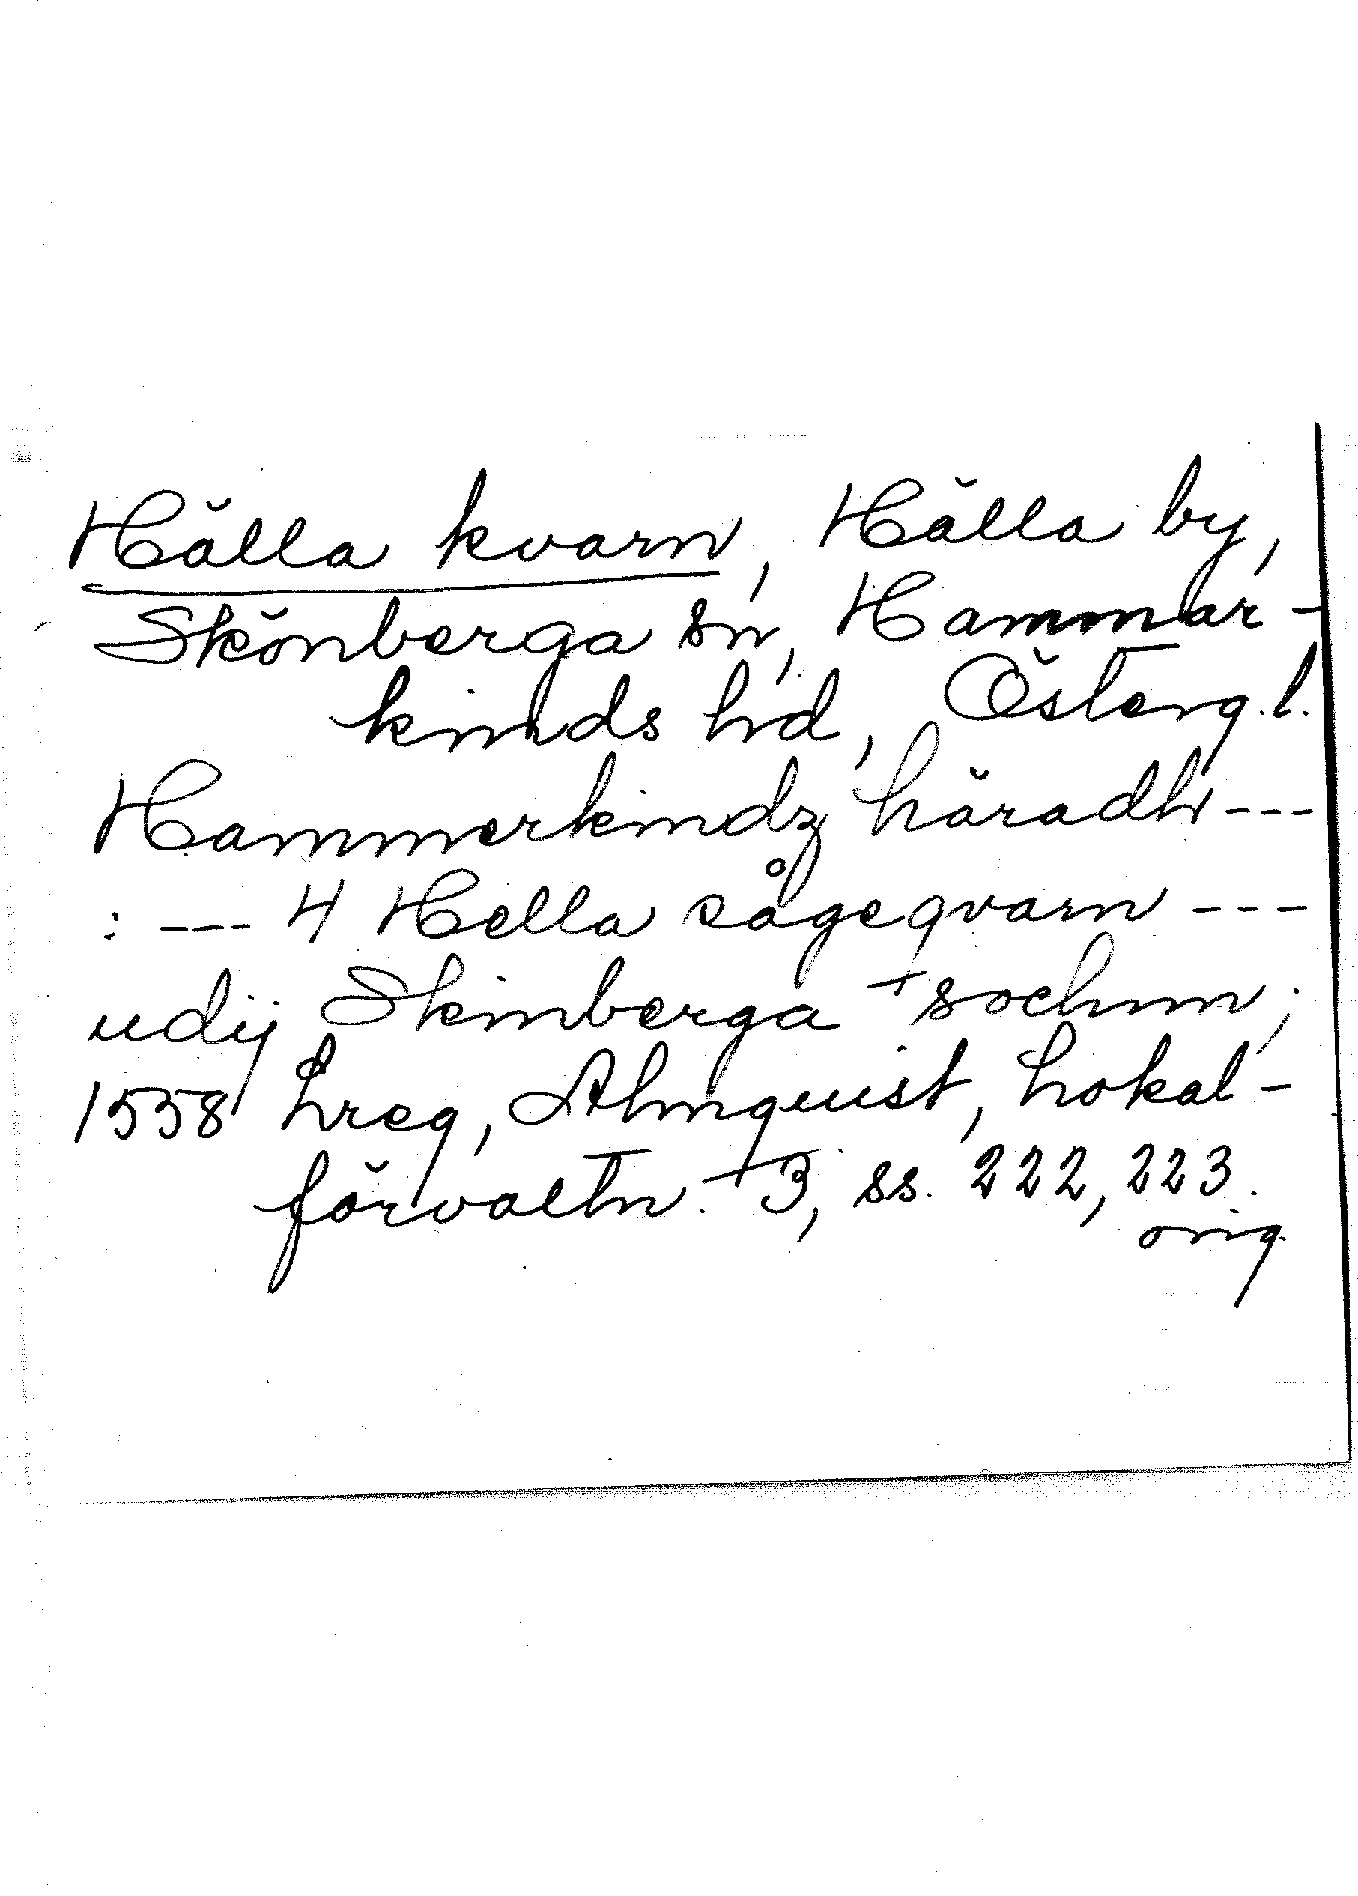 Hälla kvarn, Hälla by,
Skönberga sn, Hammar-
kinds hd, Österg.l.
Hammerkindz häradh ---
: --- 4 Hella sågeqvarn ---
udij Skinberga sochnn;
1558 Lreg, Almquist, Lokal-
förvaltn. 3, ss. 222, 223.
orig